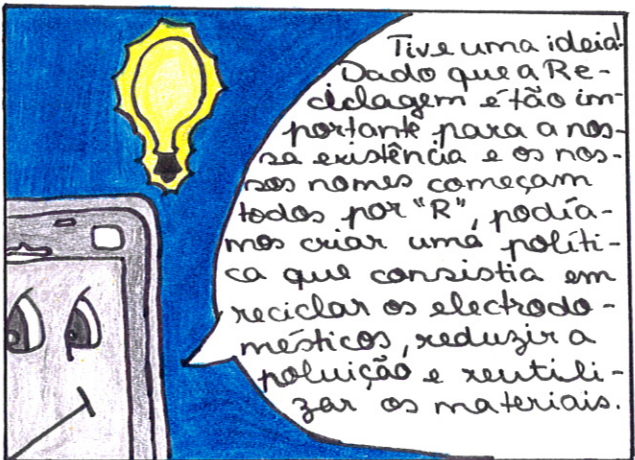 Tive uma ideia!
Dado que a Re-
ciclagem é tão im-
portante para a nos-
sa existência e os nos-
sos nomes começam
todos por "R", podía-
mos criar uma políti-
ca que consistia em
reciclar os electrodo-
mésticos, reduzir a
poluição e reutili-
zar os materiais.